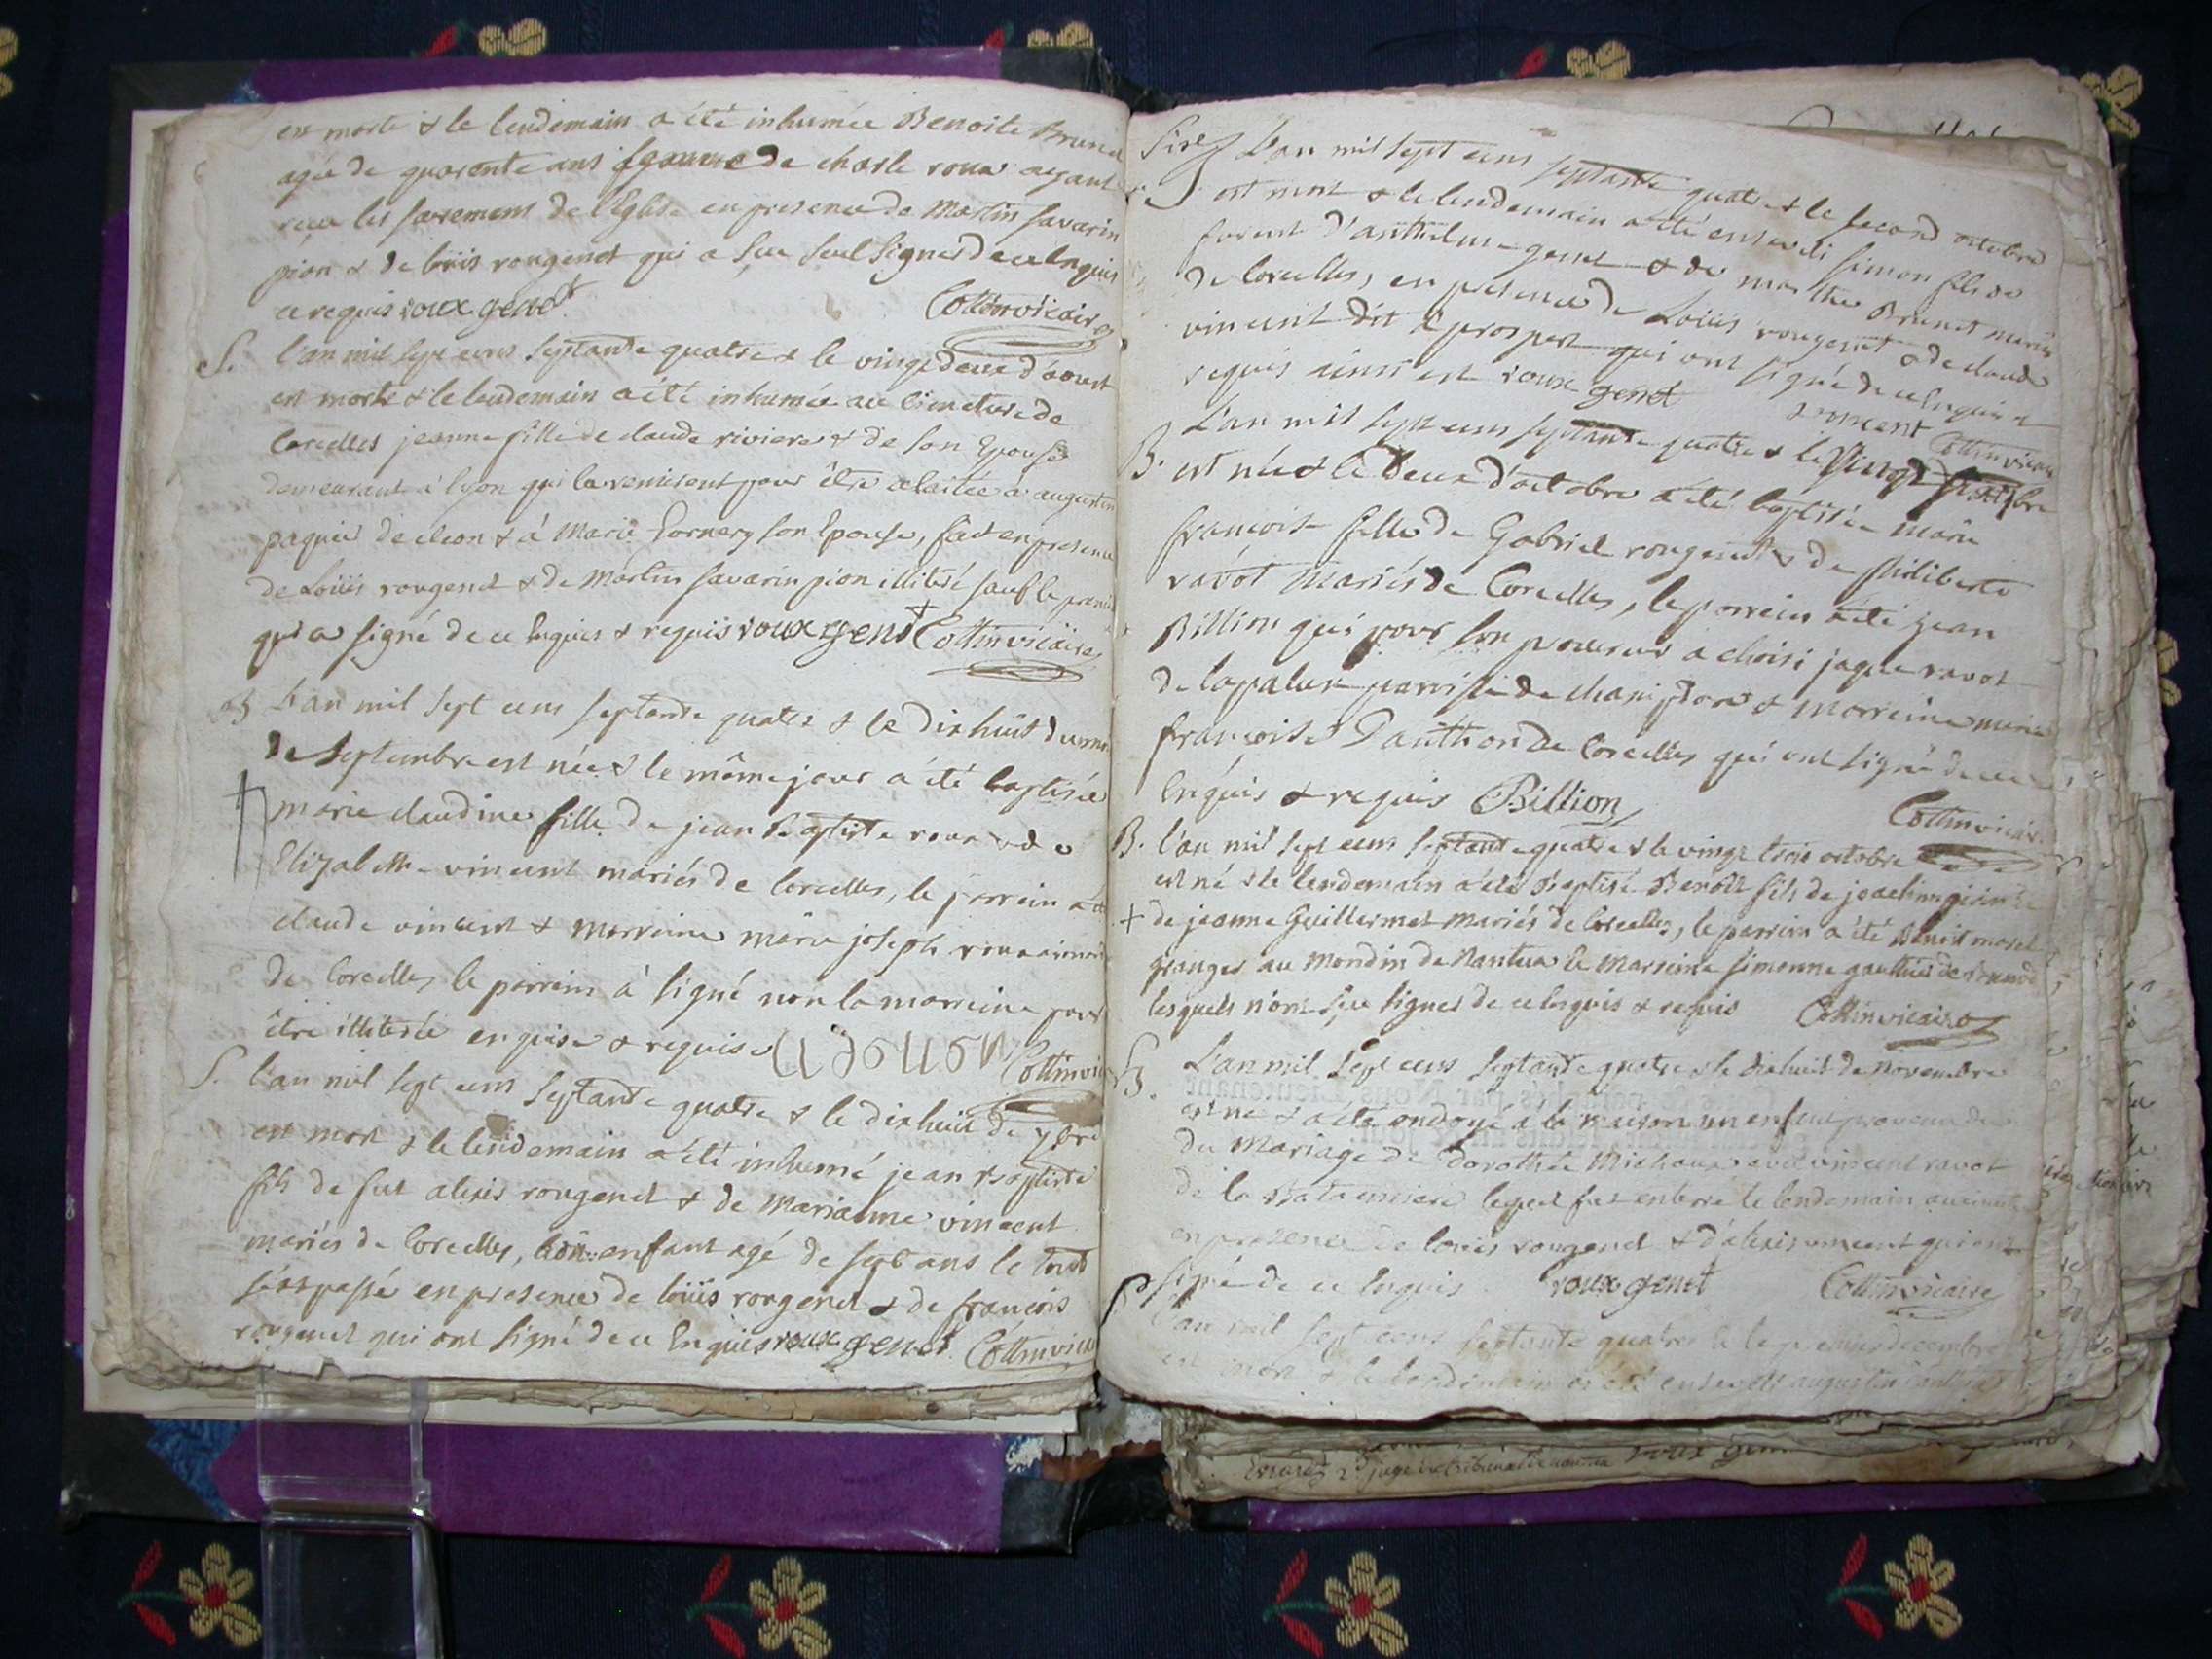 est morte & le lendemain a été inhumée Benoite Brunet
agée de quarente ans femme de charle roux ayant
recu les sacremens de l'Eglise en presence de Martin savarin
pion & de loüis rougenet qui a sçu seul signer de ce enquis
et requis roux genet Cottin vicaire
S. l'an mil sept cens septante quatre & le vingt deux d'aoust
est morte & le lendemain a été inhumée au cimetiere de
Corcelles jeanne fille de claude riviere & de son Epouse
demeurant à lyon qui la remirent pour être alaitée a augustin
paquier de cleon & à Marie Fornery son Epouse, fait en presence
de Loüis rougenet & de Martin savarin pion illiteré sauf le premier
qui a signé de ce enquis & requis roux genet Cottin vicaire
B L'an mil sept cens septante quatre & le dix huit du mois
de septembre est née & le même jour a été baptisée
marie claudine fille de jean Baptiste roux & de
Elizabeth vincent mariés de Corcelles, le parrein a été
claude vincent & marreine marie joseph roux
de Corcelles le parrein à signé non la marreine pour
être illiterée enquise & requise Cottin vic
S. l'an mil sept cens septante quatre & le dix huit de 7bre
est mort & le lendemain a été inhumé jean Baptiste
fils de fut alexis rougenet & de Marianne vincent
mariés de Corcelles, enfant agé de sept ans le tout
s'est passé en presence de loüis rougenet & de françois
rougenet qui ont signé de ce Enquis roux genet Cottin vicaire
L'an mil sept cens septante quatre & le second octobre
est mort & le lendemain a été enseveli simon fils de
d'anthelme genet & de marthe Brunet mariés
de Corcelles, en presence de Loüis rougenet & de claude
vincent dit prosper qui ont signé de ce enquis &
requis ainsi est roux genet vincent Cottin vicaire
B. L'an mil sept cens septante quatre & le
est née & le deux d'octobre a été baptisée marie
françoise fille de Gabriel rougenet & de philiberte
ravot mariés de Corcelles, le parrein a été jean
Billion qui pour son procureur a choisi jaque ravot
de lapalue parroisse de & marreine marie
françoise de Corcelles qui ont signé de ce
Enquis & requis Billion Cottin vicaire
B. l'an mil sept cens septante quatre & le vingt trois octobre
est né & le lendemain a été Baptisé Benoît fils de joachim &
+ de jeanne Guillermet mariés de Corcelles, le parrein a été Benoit morel
granger au mondin de Nantua & la Marreine simonne gauthier de
lesquels n'ont sçu signer de ce enquis & requis Cottin vicaire
B. L'an mil sept cens septante quatre & le dix huit de novembre
est né & a été ondoyé à la maison un enfent provenu
du Mariage de dorothée Michoux avec vincent ravot
de la lequel fut enterré le lendemain au
en presence de loüis rougenet & d'alexis vincent qui ont
signé de ce Enquis roux genet Cottin vicaire
l'an mil sept cens septante quatre & le premier decembre
est mort & le lendemain a été enseveli augustin